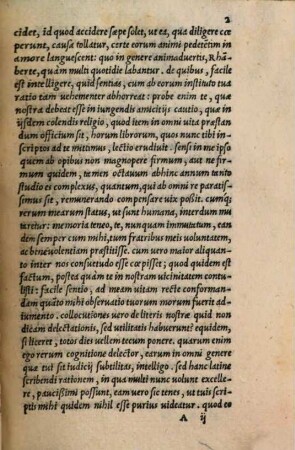 2
cidet, id quod accidere sæpe solet, ut ea, quæ diligere cœ
perunt, causa tollatur, certe eorum animi pedetẽtim in
amore languescent: quo in genere animaduertis, Rhã
berte, quàm multi quotidie labantur. de quibus, facile
est intelligere, quid sentias, cum ab eorum instituto tua
ratio tam uehementer abhorreat: probe enim te, quæ
nostra debeat esse in iungendis amicitijs cautio, quæ in
ijsdem colendis religio, quod item in omni uita præstan
dum officium sit, horum librorum, quos nunc tibi in-
scriptos ad te mitimus, lectio erudiuit. sense in me ipso
quem ab opibus non magnopere firmum, aut ne fir-
mum quidem, tamen octauum abhinc annum tanto
studio es complexus, quantum, qui ab omni re paratis-
simus sit, remunerando compensare uix poßit. cumq́;
rerum mearum status, ut sunt humana, interdum mu
taretur: memoria teneo, te, nunquam immutatum, ean
dem semper cum mihi, tum fratribus meis uoluntatem,
ac beneuolentiam præstitisse. cum uero maior aliquan-
to inter nos consuetudo esse cœpisset; quod quidem est
factum, postea quàm te in nostram uicinitatem contu-
listi: facile sentio, ad meam uitam recte conforman-
dam quãto mihi obseruatio tuorum morum fuerit ad-
iumento. collocutiones uero de literis nostræ quid non
dicam delectationis, sed utilitatis habuerunt? equidem,
si liceret, totos dies uellem tecum ponere. quarum enim
ego rerum cognitione delector, earum in omni genere
quæ tui sit iudicij subtilitas, intelligo. sed hanc latine
scribendi rationem, in qua multi nunc uolunt excelle-
re, paucißimi possunt, eam uero sic tenes, ut tuis scri-
ptis mihi quidem nihil esse purius uideatur. quod eo
A ij